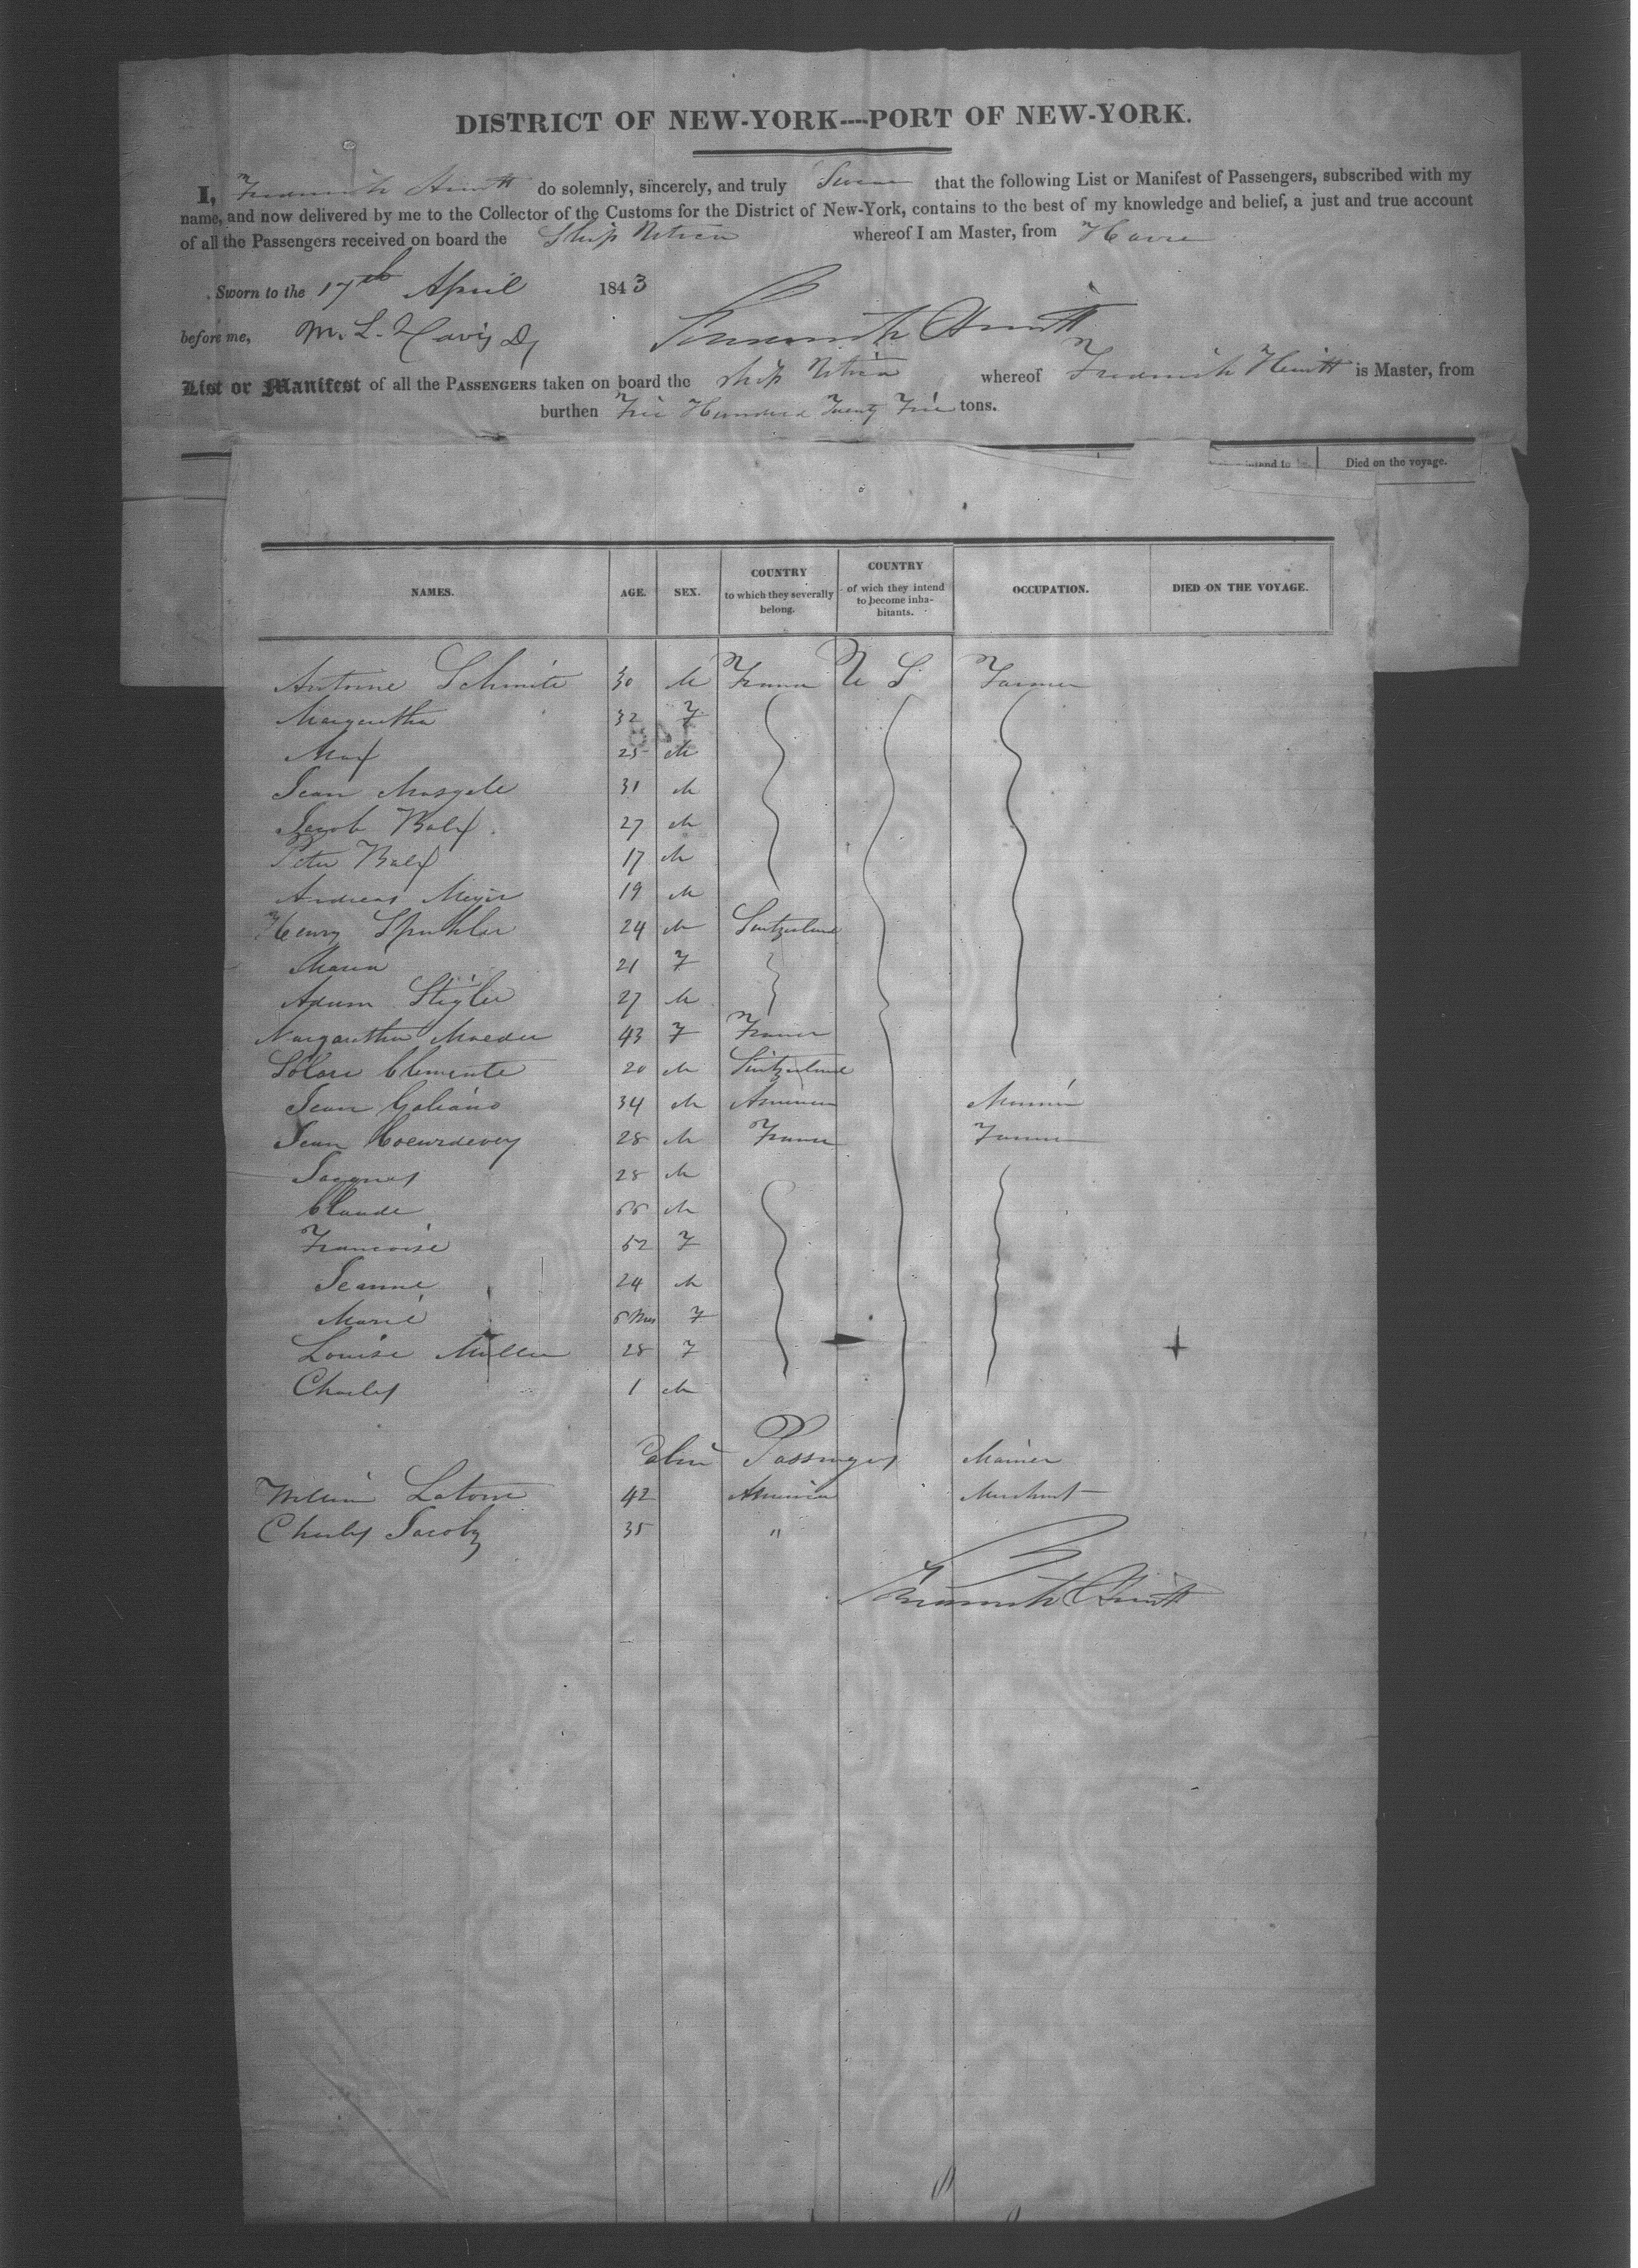 DISTRICT OF NEW-YORK----PORT OF NEW-YORK.
I, Frederick Hewitt do solemnly, sincerely, and truly Swear that the following List or Manifest of Passengers, subscribed with my
name, and now delivered by me to the Collector of the Customs for the District of New-York, contains to the best of my knowledge and belief, a just and true account
of all the Passengers received on board the Ship Utica whereof I am Master, from Havre
Sworn to the 17th April 1843
before me, M. L. Davis Frederick Hewitt
List or Manifest of all the PASSENGERS taken on board the ship Utica whereof Frederick Hewitt is Master, from
burthen Five Hundred Twenty Five tons.
intend to Died on the voyage.
NAMES. AGE. SEX. COUNTRY to which they severally belong. COUNTRY of wich they intend to become inhabitants. OCCUPATION. DIED ON THE VOYAGE.
Antoine Schmite 30 M France U S Farmer
Margaretha 32 F
Max 25 M
Jean 31 M
Jacob 27 M
Peter 17 M
Andreas Meyer 19 M
Henry Spuhler 24 M Switzerland
Maria 21 F
Adam Stigler 27 M
Margaretha Maeder 43 F France
Clemente 20 M Switzerland
Jean Galiano 34 M America
Jean Coeurdevey 28 M France Farmer
Jacques 28 M
Claude M
Francoise 52 F
Jeanne 24 M
Marie F
Louise Miller 28 F
Charles 1 M
Cabin Passengers
William 42 America Merchant
Charles Jacoby 35 "
Frederick Hewitt